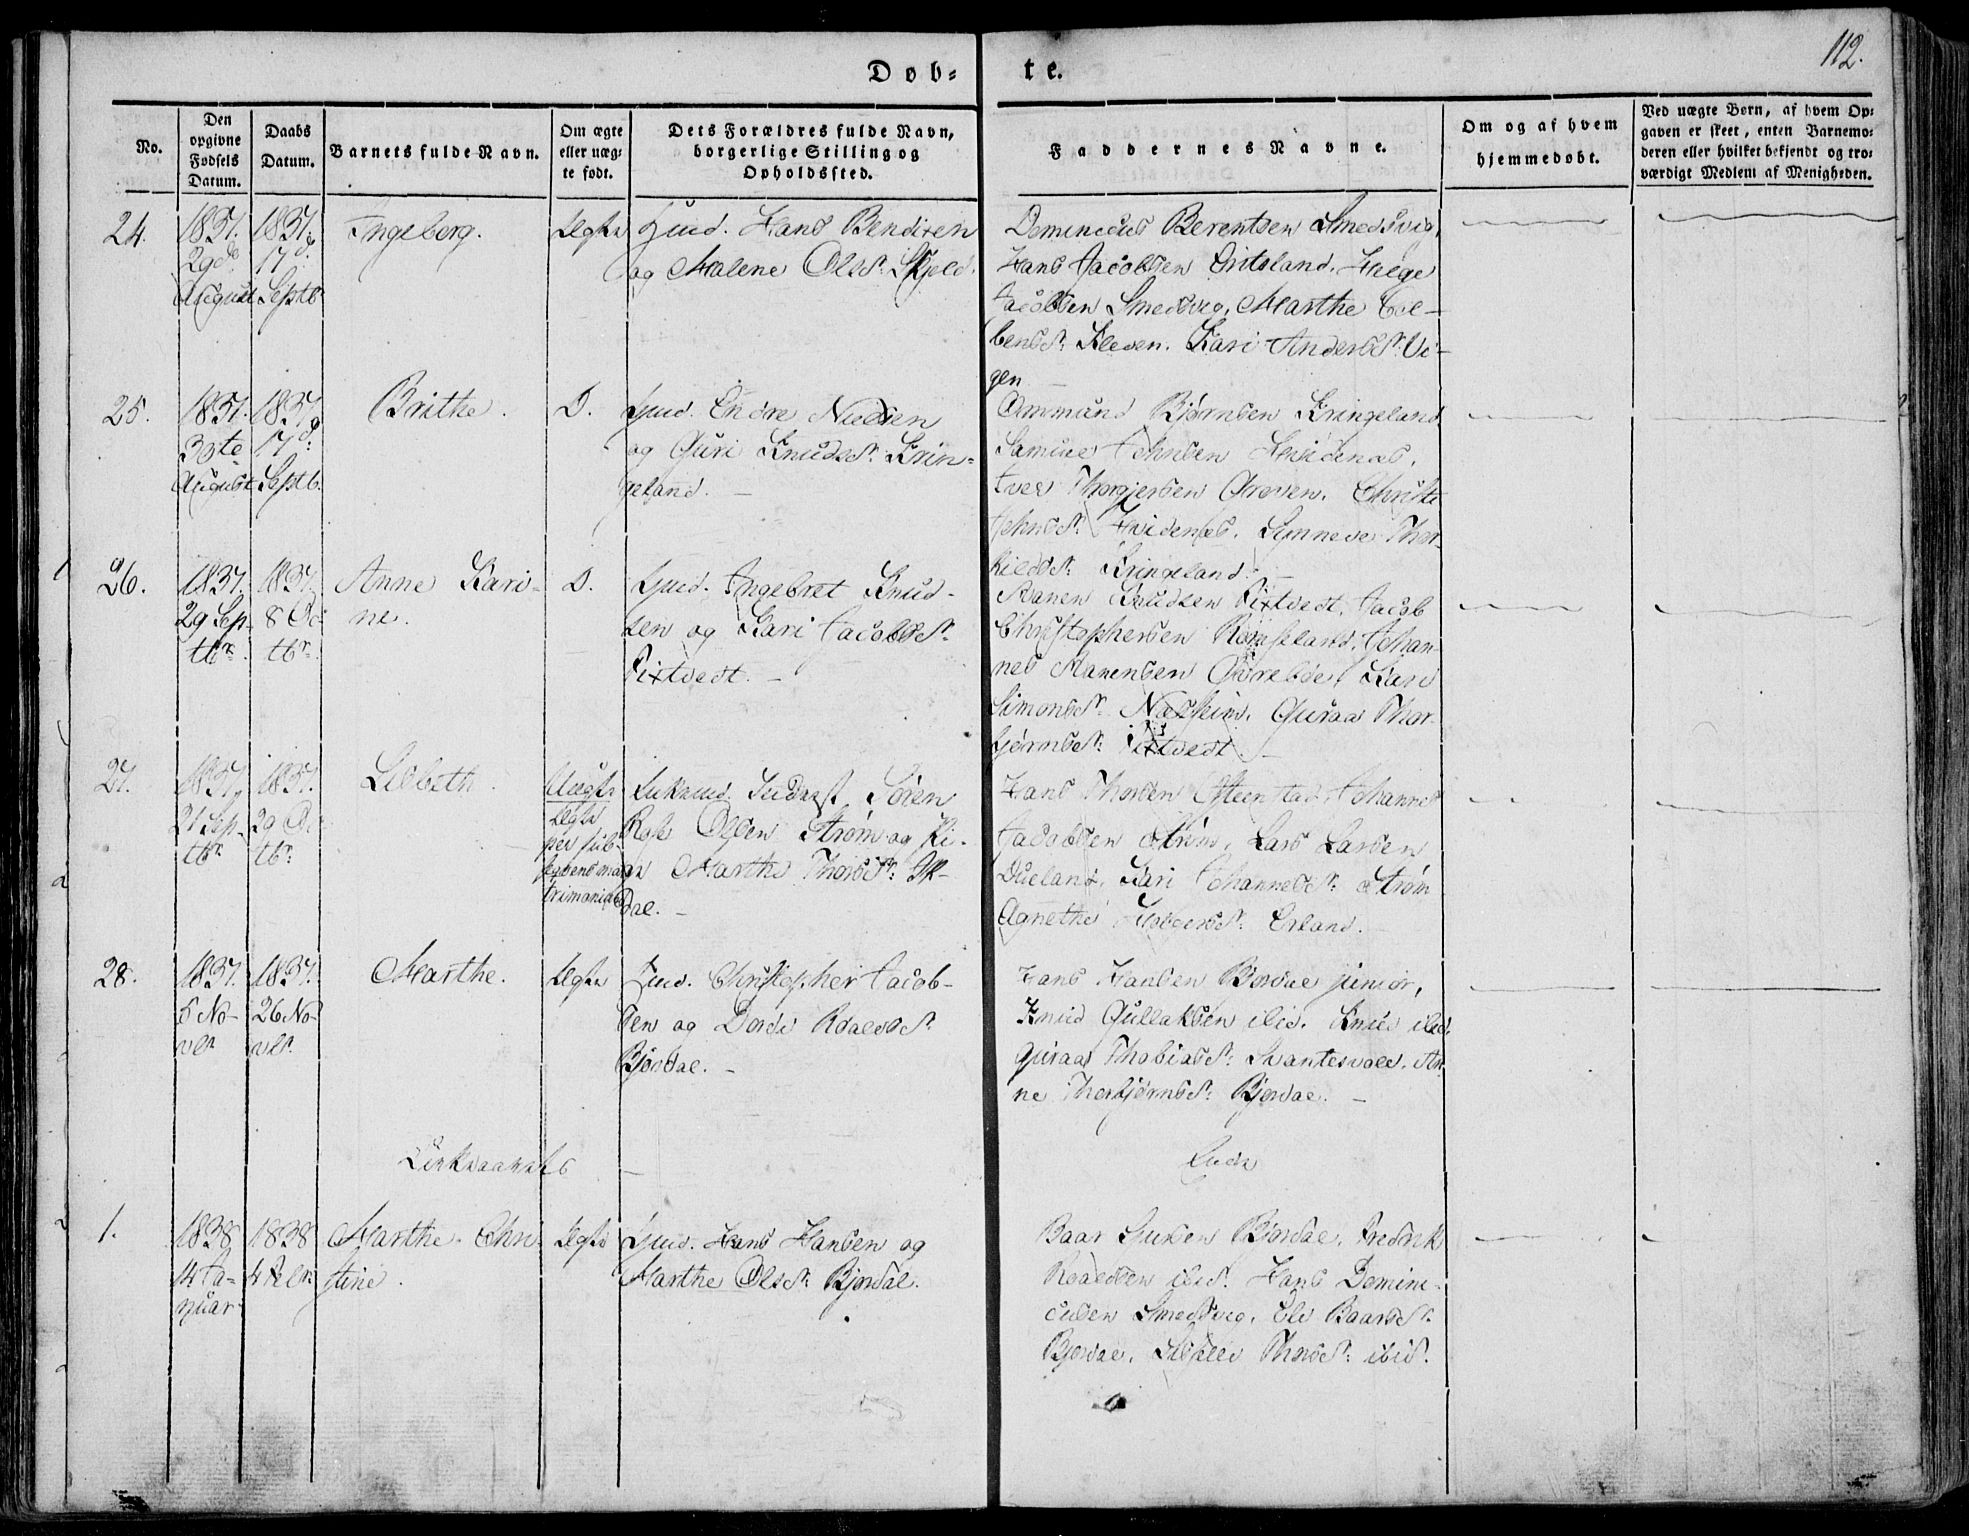 112.
Døb-
te.
No.
Den
opgivne
Fødsels
Datum.
Daabs
Datum.
Barnets fulde Navn.
Om ægte
eller uæg-
te født.
Dets Forældres fulde Navn,
borgerlige Stilling og
Opholdssted.
Faddernes Navne.
Om og af hvem
hjemmedøbt.
Ved uægte Børn, af hvem Op-
gaven er skeet, enten Barnemo-
deren eller hvilket bekjendt og tro-
værdigt Medlem af Menigheden.
24.
1837.
29de
August
1837.
17de
Septb.
Ingeborg.
Ægte
Hans Bendixen
og Malene Olsdr. Skjold.
Dominicus Berentsen Smedsvig,
Hans Jacobsen Helge
Jacobsen Smedsvig, Marthe
Kleven. Kari Andersdr. Vi-
gen
25.
1837.
30te
August
1837
17de
Septb.
Brithe.
D.
Gmd. Endre Nielsen
og Guri Knudsdr. Krin-
geland.
Ommund Bjørnsen Kringeland
Samuel Johnsen Hvidenæs,
Iver Christi
Johnsdr. Hvidenæs. Synneve Thor-
kildsdr. Kringeland.
26.
1837.
29 Sep-
tbr.
1837.
8 Oc-
tbr.
Anne Kari-
ne.
D.
Gmd. Ingebret Knud-
sen og Kari Jacobsdr.
Fixtvedt.
Knudsen Fixtvedt, Jacob
Christophersen Johan-
nes Kari
Simonsdr. Guraa Thor-
bjørnsdr. Fixtvedt
27.
1837.
21 Sep-
tbr.
1837.
29 Oc-
tbr.
Lisbeth
Uægte
Ægte
per sub-
seqvens ma-
trimonium
Søren
Olsen Strøm og Pi-
gen Marthe Thorsdr.
dal.
Hans Thorsen Johannes
Jacobsen Strøm, Lars Larsen
Dueland, Kari Johannesdr. Strøm
Agnethe Erland.
28.
1837.
5 No-
vbr.
1837.
26 No-
vbr.
Marthe.
Ægte
Christopher Jacob-
sen og Dorde Roaldsdr.
Bjordal.
Hans Hansen Bjordal junior,
Knud Gullaksen ibid. Knud ibid.
Guraa Thobiasdr. Svantesvold. An-
ne Thorbjørnsdr. Bjordal.
Kirkeaarets
Ende
1.
1838
14 Ja-
nuar
1838
4 Febr.
Marthe Chri-
stine.
Ægte
Gmd. Hans Hansen og
Marthe Olsdr. Bjordal.
Baar Bjordal, Fredrik
Roaldsen ibid. Hans Domini-
cusen Smedsvig, Eli Baarsdr.
Bjordal, Thorsdr. ibid.